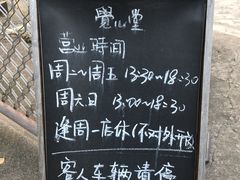 覺心堂
营业時间
周二~周五 13:30~18:30
周六日 13:00~18:30
逢周一店休(不对外开放)
客人车辆请停